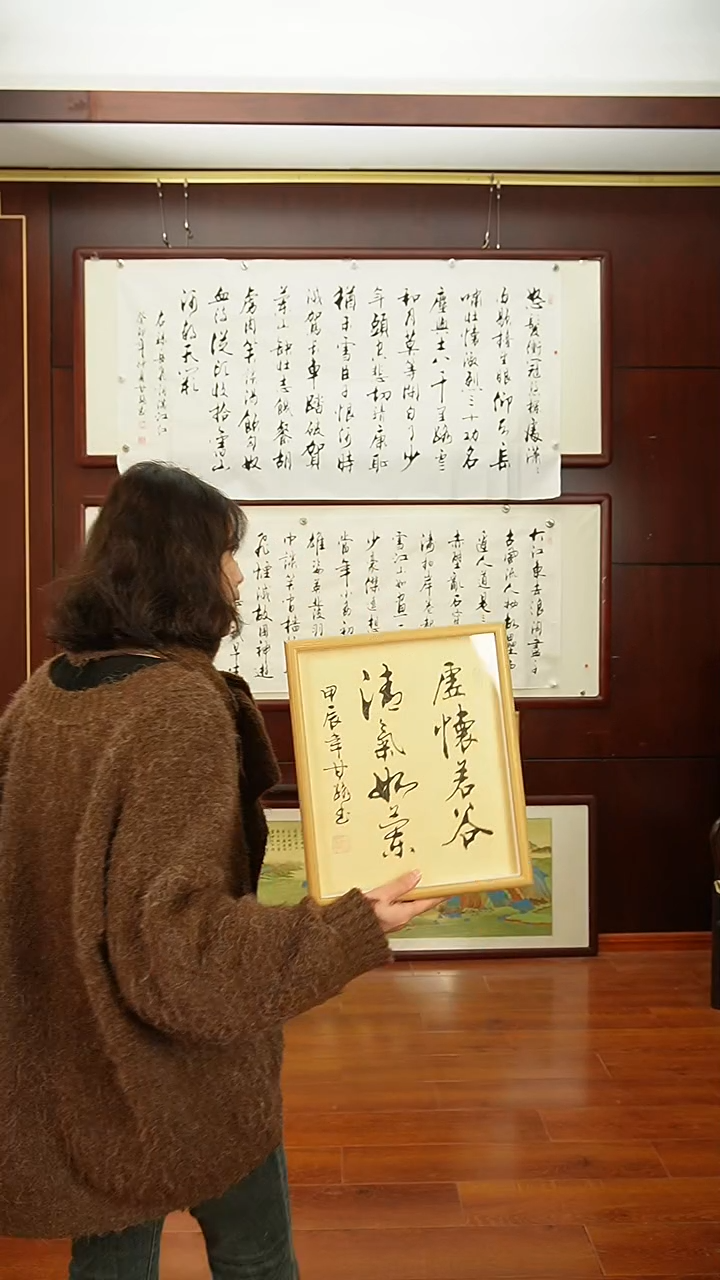 怒髮衝冠憑欄處瀟
雨歇抬望眼仰天長
嘯壯懷激烈三十功名
塵與土八千里路雲
和月莫等閒白了少
年頭空悲切靖康恥
猶未雪臣子恨何時
滅駕長車踏破賀
蘭山缺壯志飢餐胡
虜肉笑談渴飲匈奴
血待從頭收拾舊山
河朝天闕
右錄岳飛詞滿江紅
癸卯年
大江東去浪淘盡千
古風流人物故壘西
邊人道是三
赤壁亂石穿
濤拍岸卷起
雪江山如畫一
少豪傑遙想
當年小喬初
雄姿英發羽
巾談笑間檣
飛煙滅故國神遊
早生
虛懷若谷
清氣如蘭
甲辰年甘